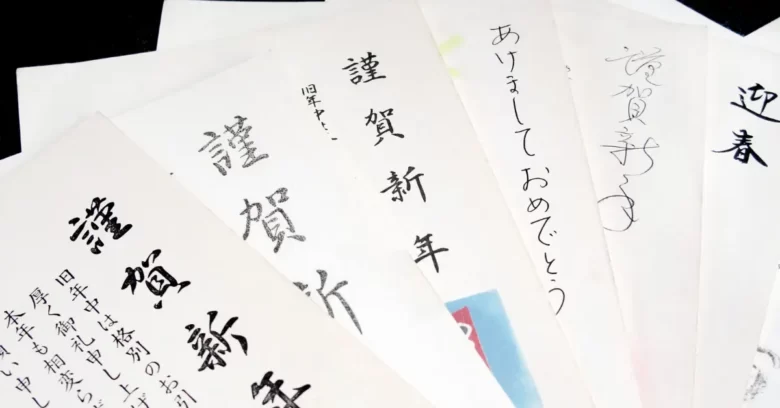 謹賀新年
旧年中は格別のお引
厚く御礼申し上げ
本年も相変らず
願い申し
謹賀新
謹賀新年
旧年中
あけましておめでとう
謹賀新年
迎春